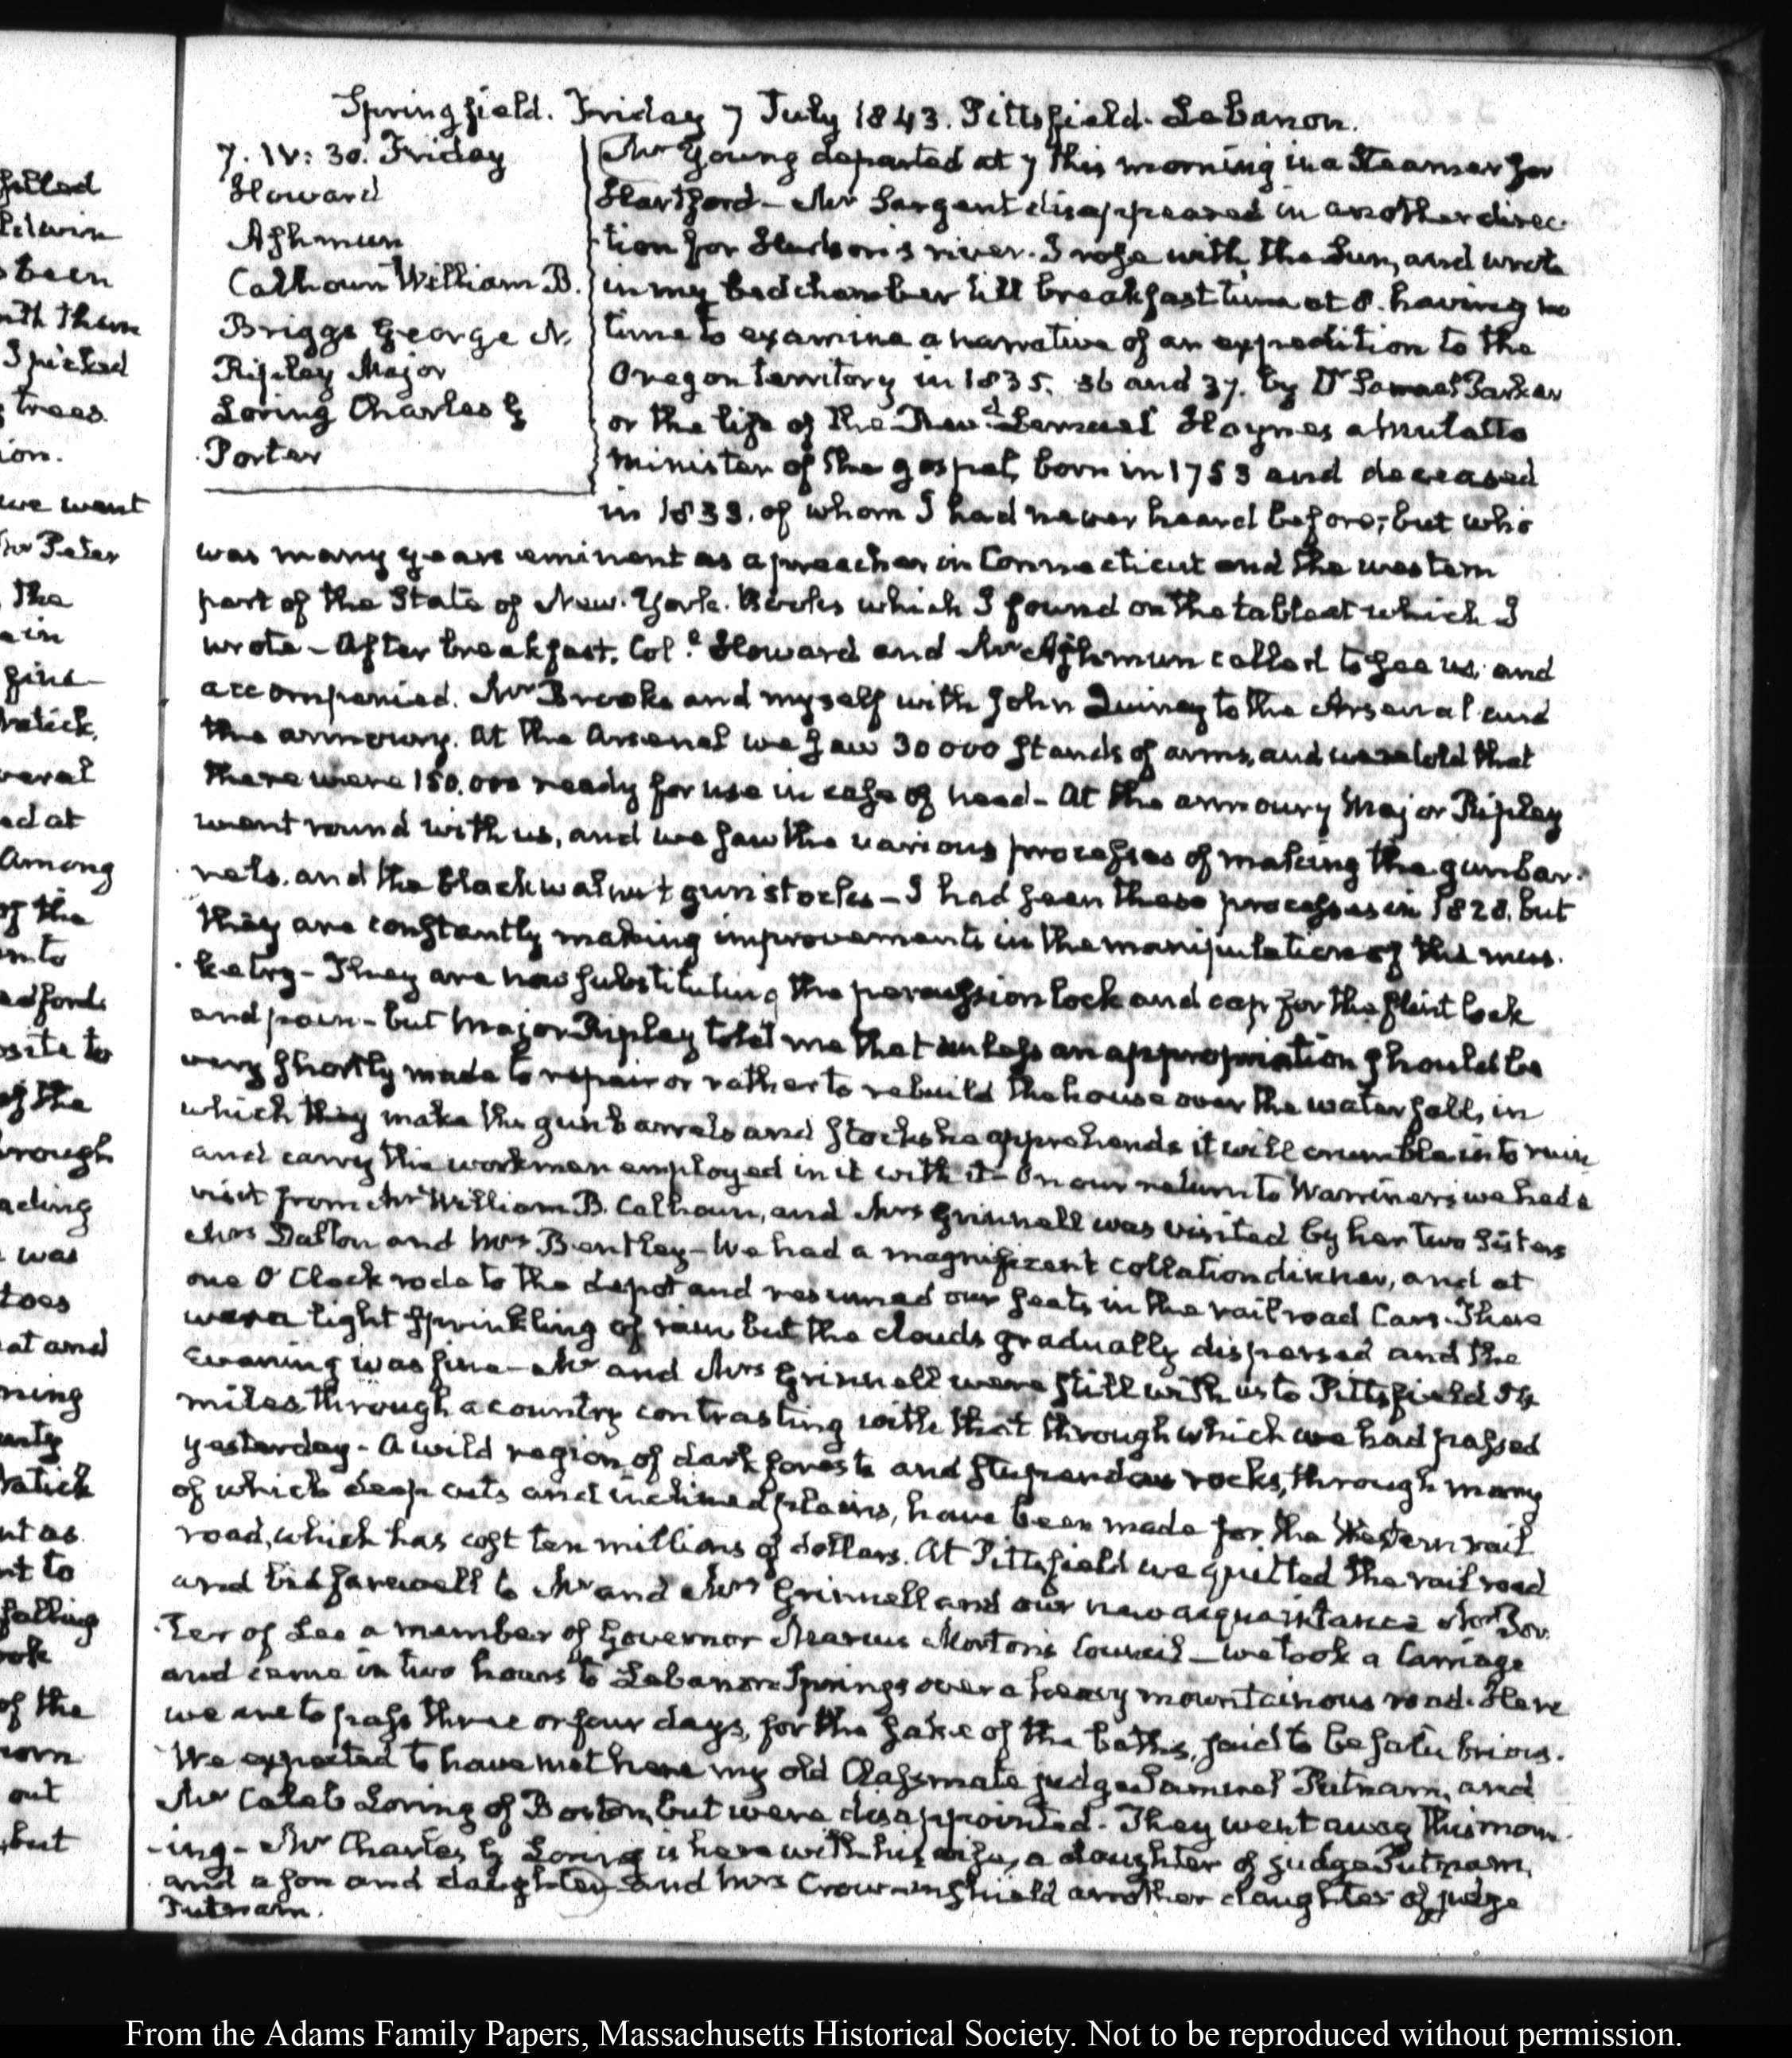 Springfield. Friday 7 July 1843. Pittsfield. Lebanon.
7. IV: 30. Friday
Howard
Ashmun
Calhoun William B.
Briggs George N.
Ripley Major
Loring Charles G
Porter
Mr Young departed at 7 this morning in a Steamer for
Hartford – Mr Sargent disappeared in another direc-
tion for Hudson's river. I rose with the Sun, and wrote
in my bedchamber till breakfast time at 8. having no
time to examine a narrative of an expedition to the
Oregon territory in 1835. 36 and 37. by Dr Samuel Parker
or the life of the Revd. Lemuel Haynes a Mulatto
minister of the gospel, born in 1753 and deceased
in 1833. of whom I had never heard before, but who
was many years eminent as a preacher in Connecticut and the western
part of the State of New-York. Books which I found on the table at which I
wrote – After breakfast, Col. Howard and Mr Ashmun called to see us, and
accompanied. Mr Brooks and myself with John Quincy to the Arsenal and
the armoury. At the Arsenal we saw 30000 stands of arms, and were told that
there were 150.000 ready for use in case of need – At the armoury Major Ripley
went round with us, and we saw the various processes of making the gunbar-
rels, and the black walnut gunstocks – I had seen these processes in 1828. but
they are constantly making improvements in the manipulation of the mus-
ketry – They are now substituting the percussion lock and cap for the flint lock
and pan – but Major Ripley told me that unless an appropriation should be
very shortly made to repair or rather to rebuild the house over the waterfall, in
which they make the gunbarrels and stocks he apprehends it will crumble into ruin
and carry the workmen employed in it with it – On our return to Warriner's we had a
visit from Mr William B. Calhoun, and Mrs Grinnell was visited by her two Sisters
Mrs Dalton and Mrs Bentley – We had a magnificent collation dinner, and at
one O'Clock rode to the depot and resumed our seats in the rail road Cars. There
were a light sprinkling of rain but the clouds gradually dispersed and the
Evening was fine – Mr and Mrs Grinnell were still with us to Pittsfield 54
miles through a country contrasting with that through which we had passed
yesterday – A wild region of dark forests and stupendous rocks, through many
of which deep cuts and inclined plains, have been made for the Western rail
road, which has cost ten millions of dollars. At Pittsfield we quitted the rail road
and bid farewell to Mr and Mrs Grinnell and our new acquaintance Mr Por-
ter of Lee a member of Governor Marcus Morton's Council – we took a Carriage
and came in two hours to Lebanon Springs over a heavy mountainous road. Here
we are to pass three or four days, for the sake of the baths, said to be salubrious.
We expected to have met here my old Classmate judge Samuel Putnam, and
Mr Caleb Loring of Boston, but were disappointed. They went away this morn-
ing – Mr Charles G Loring is here with his wife, a daughter of judge Putnam,
and a son and daughter, and Mrs Crowninshield another daughter of judge
Putnam.
From the Adams Family Papers, Massachusetts Historical Society. Not to be reproduced without permission.